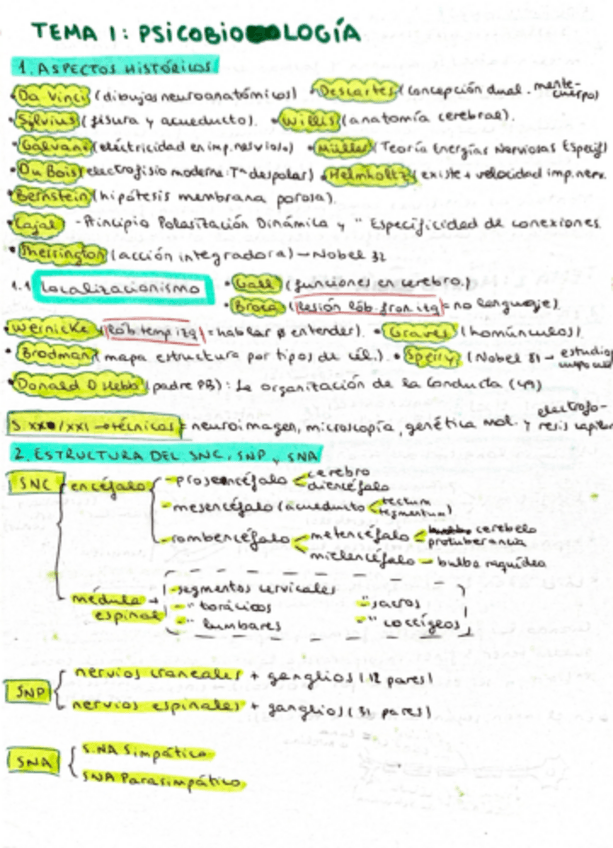 TEMA 1: PSICOBIOLOGÍA
1. ASPECTOS HISTÓRICOS
• Da Vinci (dibujos neuroanatómicos) • Descartes (concepción dual. mente-cuerpo)
• Sylvius (fisura y acueducto). • Willis (anatomía cerebral).
• Galvani (electricidad en imp. nervioso) • Müller (Teoría Energías Nerviosas Específ)
• Du Bois (electrofisio moderna: Tª despolar) • Helmholtz (existe + velocidad imp. nerv.
• Bernstein (hipótesis membrana porosa).
• Cajal - Principio Polarización Dinámica y " Especificidad de conexiones
• Sherrington (acción integradora) - Nobel 32
1.1 Localizacionismo • Gall (funciones en cerebro.)
• Broca (lesión lób. fron. izq = no lenguaje)
• Wernicke (lób. temp izq = hablar ø entender). • Graves (homúnculos).
• Brodman (mapa estructura por tipos de cél.). • Sperry (Nobel 81 - estudios
• Donald O Hebb (padre PB): La organización de la Conducta (49)
S XX/XXI → técnicas = neuroimagen, microscopía, genética mol. y electrofo-resis capilar
2. ESTRUCTURA DEL SNC, SNP, SNA
SNC encéfalo - prosencéfalo < cerebro
diencéfalo
- mesencéfalo (acueducto < tectum
tegmentum)
- rombencéfalo < metencéfalo < cerebelo
protuberancia
mielencéfalo - bulbo raquídeo
médula espinal → - segmentos cervicales
- " torácicos - " sacros
- " lumbares - " coccígeos
SNP { nervios craneales + ganglios (12 pares)
nervios espinales + ganglios (31 pares)
SNA { SNA Simpático
SNA Parasimpático